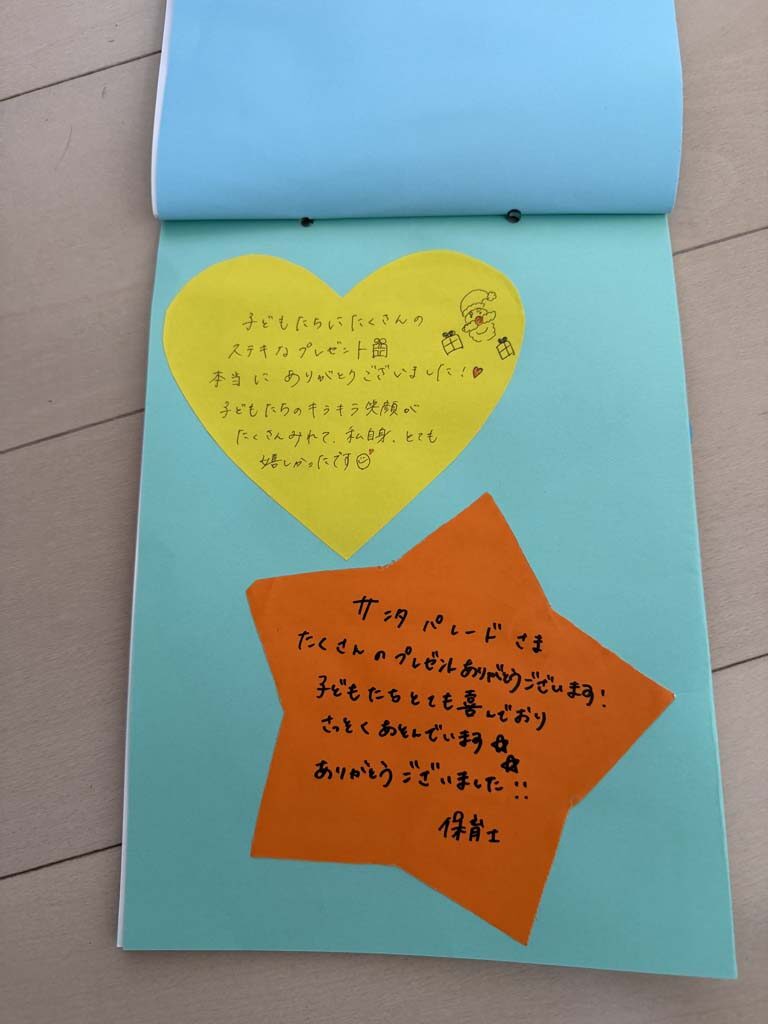 子どもたちにたくさんの
ステキなプレゼント
本当にありがとうございました!
子どもたちのキラキラ笑顔が
たくさんみれて、私自身、とても
嬉しかったです
サンタパレードさま
たくさんのプレゼントありがとうございます!
子どもたちとても喜んでおり
さっそくあそんでいます☆
☆
ありがとうございました!!
保育士